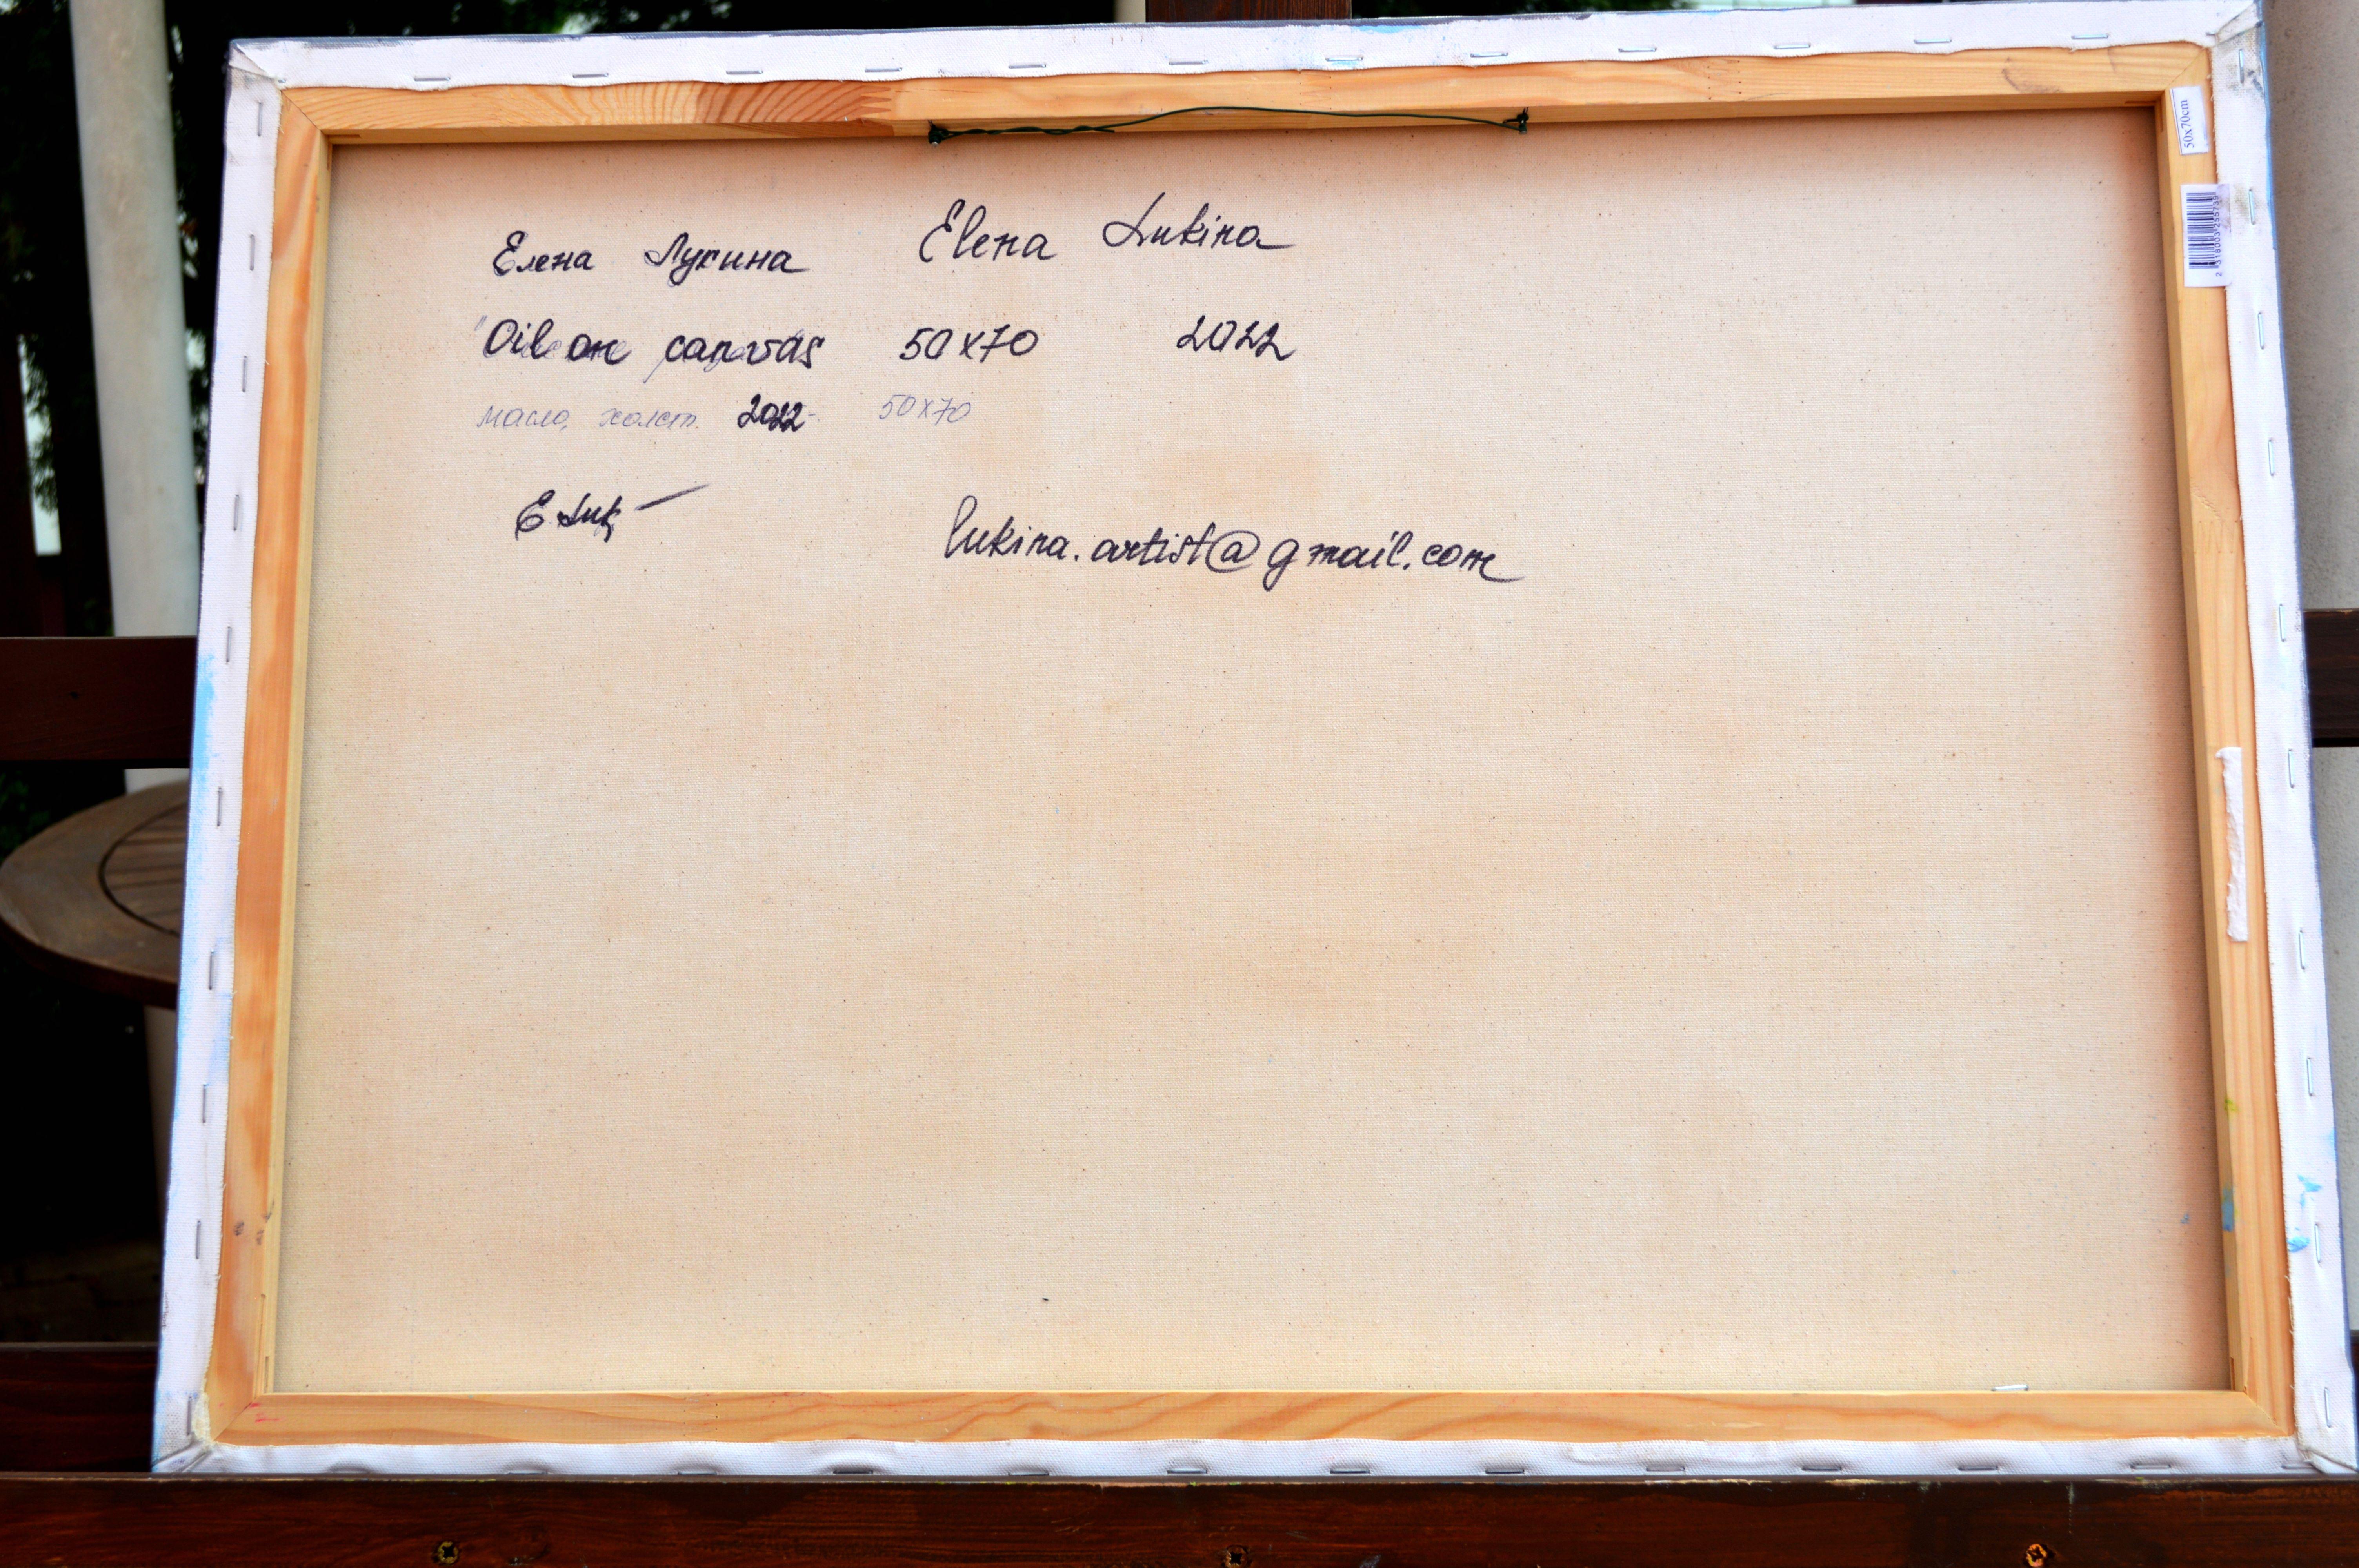 Елена Лукина Elena Lukina
Oil on canvas 50x70 2022
масло, холст. 2022 50x70
E Luk
lukina.artist@gmail.com
50x70cm